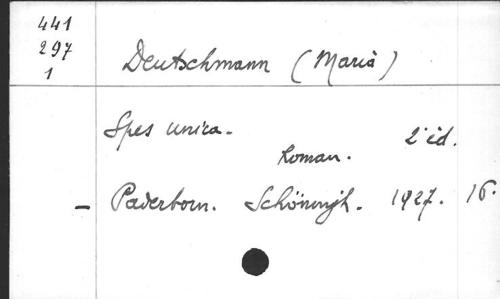 441
297
1
Deutschmann (Maria)
Spes unica.
Roman. 2 éd.
- Paderborn. Schöningh. 1927. 16.